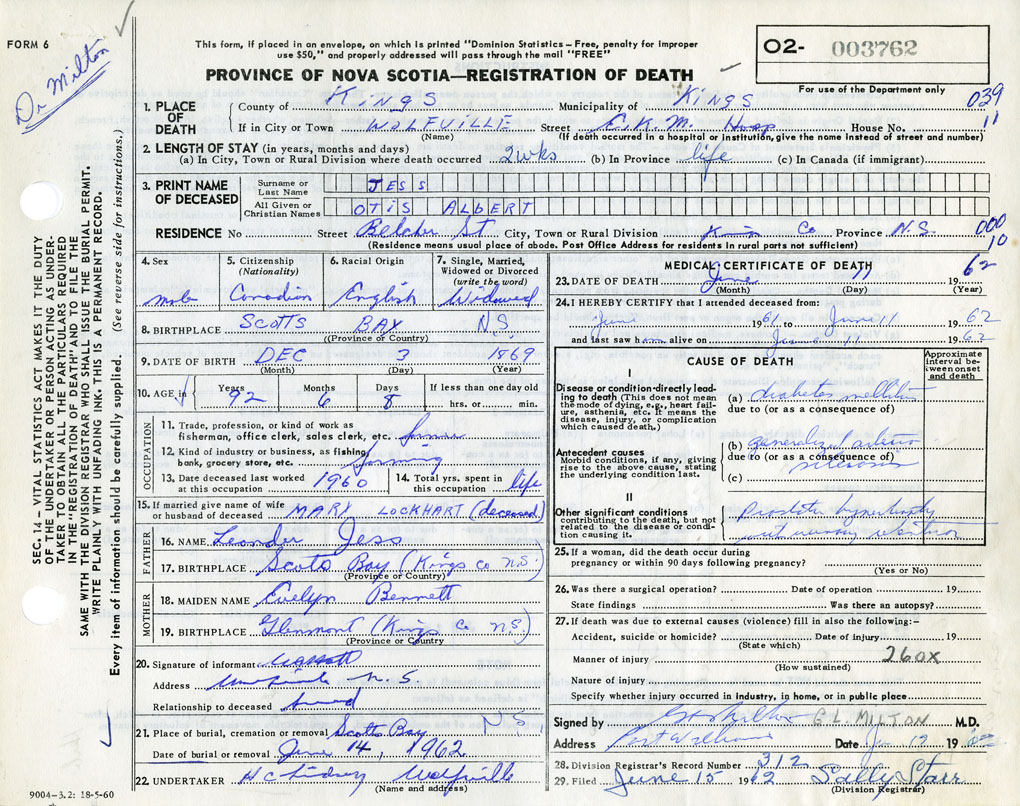 FORM 6
Dr Milton
This form, if placed in an envelope, on which is printed "Dominion Statistics – Free, penalty for improper
use $50," and properly addressed will pass through the mail "FREE"
PROVINCE OF NOVA SCOTIA—REGISTRATION OF DEATH
O2- 003762
For use of the Department only
039
11
1. PLACE OF DEATH
County of Kings Municipality of Kings
If in City or Town WOLFVILLE Street E.K.M. Hosp House No.
(Name) (If death occurred in a hospital or institution, give the name instead of street and number)
2. LENGTH OF STAY (in years, months and days)
(a) In City, Town or Rural Division where death occurred 2 wks (b) In Province life (c) In Canada (if immigrant)
3. PRINT NAME OF DECEASED
Surname or Last Name JESS
All Given or Christian Names OTIS ALBERT
RESIDENCE No Street Belcher St City, Town or Rural Division Co Province N.S.
000
10
(Residence means usual place of abode. Post Office Address for residents in rural parts not sufficient)
4. Sex male
5. Citizenship (Nationality) Canadian
6. Racial Origin English
7. Single, Married, Widowed or Divorced (write the word) Widowed
8. BIRTHPLACE SCOTTS BAY N.S.
(Province or Country)
9. DATE OF BIRTH DEC 3 1869
(Month) (Day) (Year)
10. AGE in Years 92 Months 6 Days 8 If less than one day old hrs. or min.
OCCUPATION
11. Trade, profession, or kind of work as
fisherman, office clerk, sales clerk, etc. farmer
12. Kind of industry or business, as fishing,
bank, grocery store, etc. farming
13. Date deceased last worked at this occupation 1960
14. Total yrs. spent in this occupation life
15. If married give name of wife or husband of deceased MARY LOCKHART (deceased)
FATHER
16. NAME Leander Jess
17. BIRTHPLACE Scots Bay (Kings Co N.S.)
(Province or Country)
MOTHER
18. MAIDEN NAME Evelyn Bennett
19. BIRTHPLACE Glenmont (Kings Co N.S.)
(Province or Country)
20. Signature of informant
Address N.S.
Relationship to deceased
21. Place of burial, cremation or removal Scotts Bay N.S.
Date of burial or removal June 14, 1962
22. UNDERTAKER H C Lindsey Wolfville
(Name and address)
9004–3.2: 18-5-60
SEC. 14 – VITAL STATISTICS ACT MAKES IT THE DUTY
OF THE UNDERTAKER OR PERSON ACTING AS UNDER-
TAKER TO OBTAIN ALL THE PARTICULARS REQUIRED
IN THE "REGISTRATION OF DEATH" AND TO FILE THE
SAME WITH THE DIVISION REGISTRAR WHO SHALL ISSUE THE BURIAL PERMIT.
WRITE PLAINLY WITH UNFADING INK. THIS IS A PERMANENT RECORD.
Every item of information should be carefully supplied. (See reverse side for instructions.)
MEDICAL CERTIFICATE OF DEATH
23. DATE OF DEATH June 11 19 62
(Month) (Day) (Year)
24. I HEREBY CERTIFY that I attended deceased from:
June 1961 to June 11 1962
and last saw h alive on June 11 1962
CAUSE OF DEATH
Approximate interval between onset and death
I
Disease or condition directly lead-
ing to death (This does not mean
the mode of dying, e.g., heart fail-
ure, asthenia, etc. It means the
disease, injury, or complication
which caused death.)
(a) diabetes mellitus
due to (or as a consequence of)
Antecedent causes
Morbid conditions, if any, giving
rise to the above cause, stating
the underlying condition last.
(b) generalized arterio
due to (or as a consequence of)
sclerosis
(c)
II
Other significant conditions
contributing to the death, but not
related to the disease or condi-
tion causing it.
Prostate hypertrophy
urinary retention
25. If a woman, did the death occur during
pregnancy or within 90 days following pregnancy?
(Yes or No)
26. Was there a surgical operation? Date of operation 19
State findings Was there an autopsy?
27. If death was due to external causes (violence) fill in also the following:–
Accident, suicide or homicide? Date of injury 19
(State which)
Manner of injury 260X
(How sustained)
Nature of injury
Specify whether injury occurred in industry, in home, or in public place
Signed by G L Milton G. L. MILTON M.D.
Address Port Williams Date 19
28. Division Registrar's Record Number 312
29. Filed June 15 1962 Sally Starr
(Division Registrar)